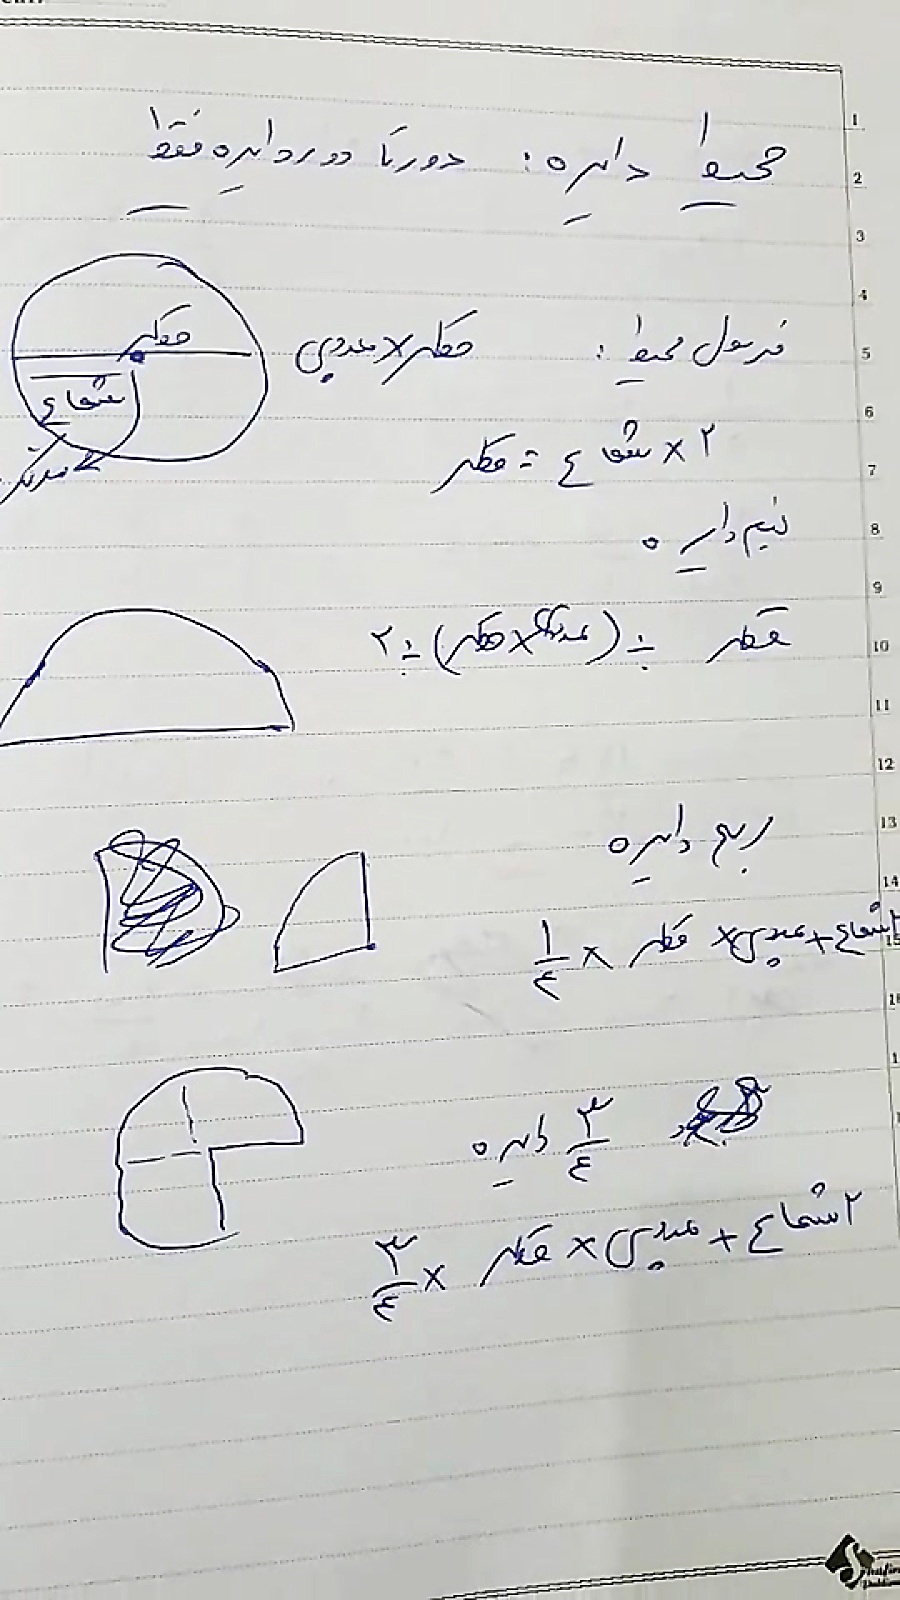 محیط دایره: دور تا دور دایره فقط
قطر
فرمول محیط: قطر × عدد پی
شعاع
مرکز
۲ × شعاع = قطر
نیم دایره
قطر ÷ (عدد پی × قطر) ÷ ۲
ربع دایره
۲ شعاع + عدد پی × قطر × ۱/۴
۳/۴ دایره
۲ شعاع + عدد پی × قطر × ۳/۴
1
2
3
4
5
6
7
8
9
10
11
12
13
14
15